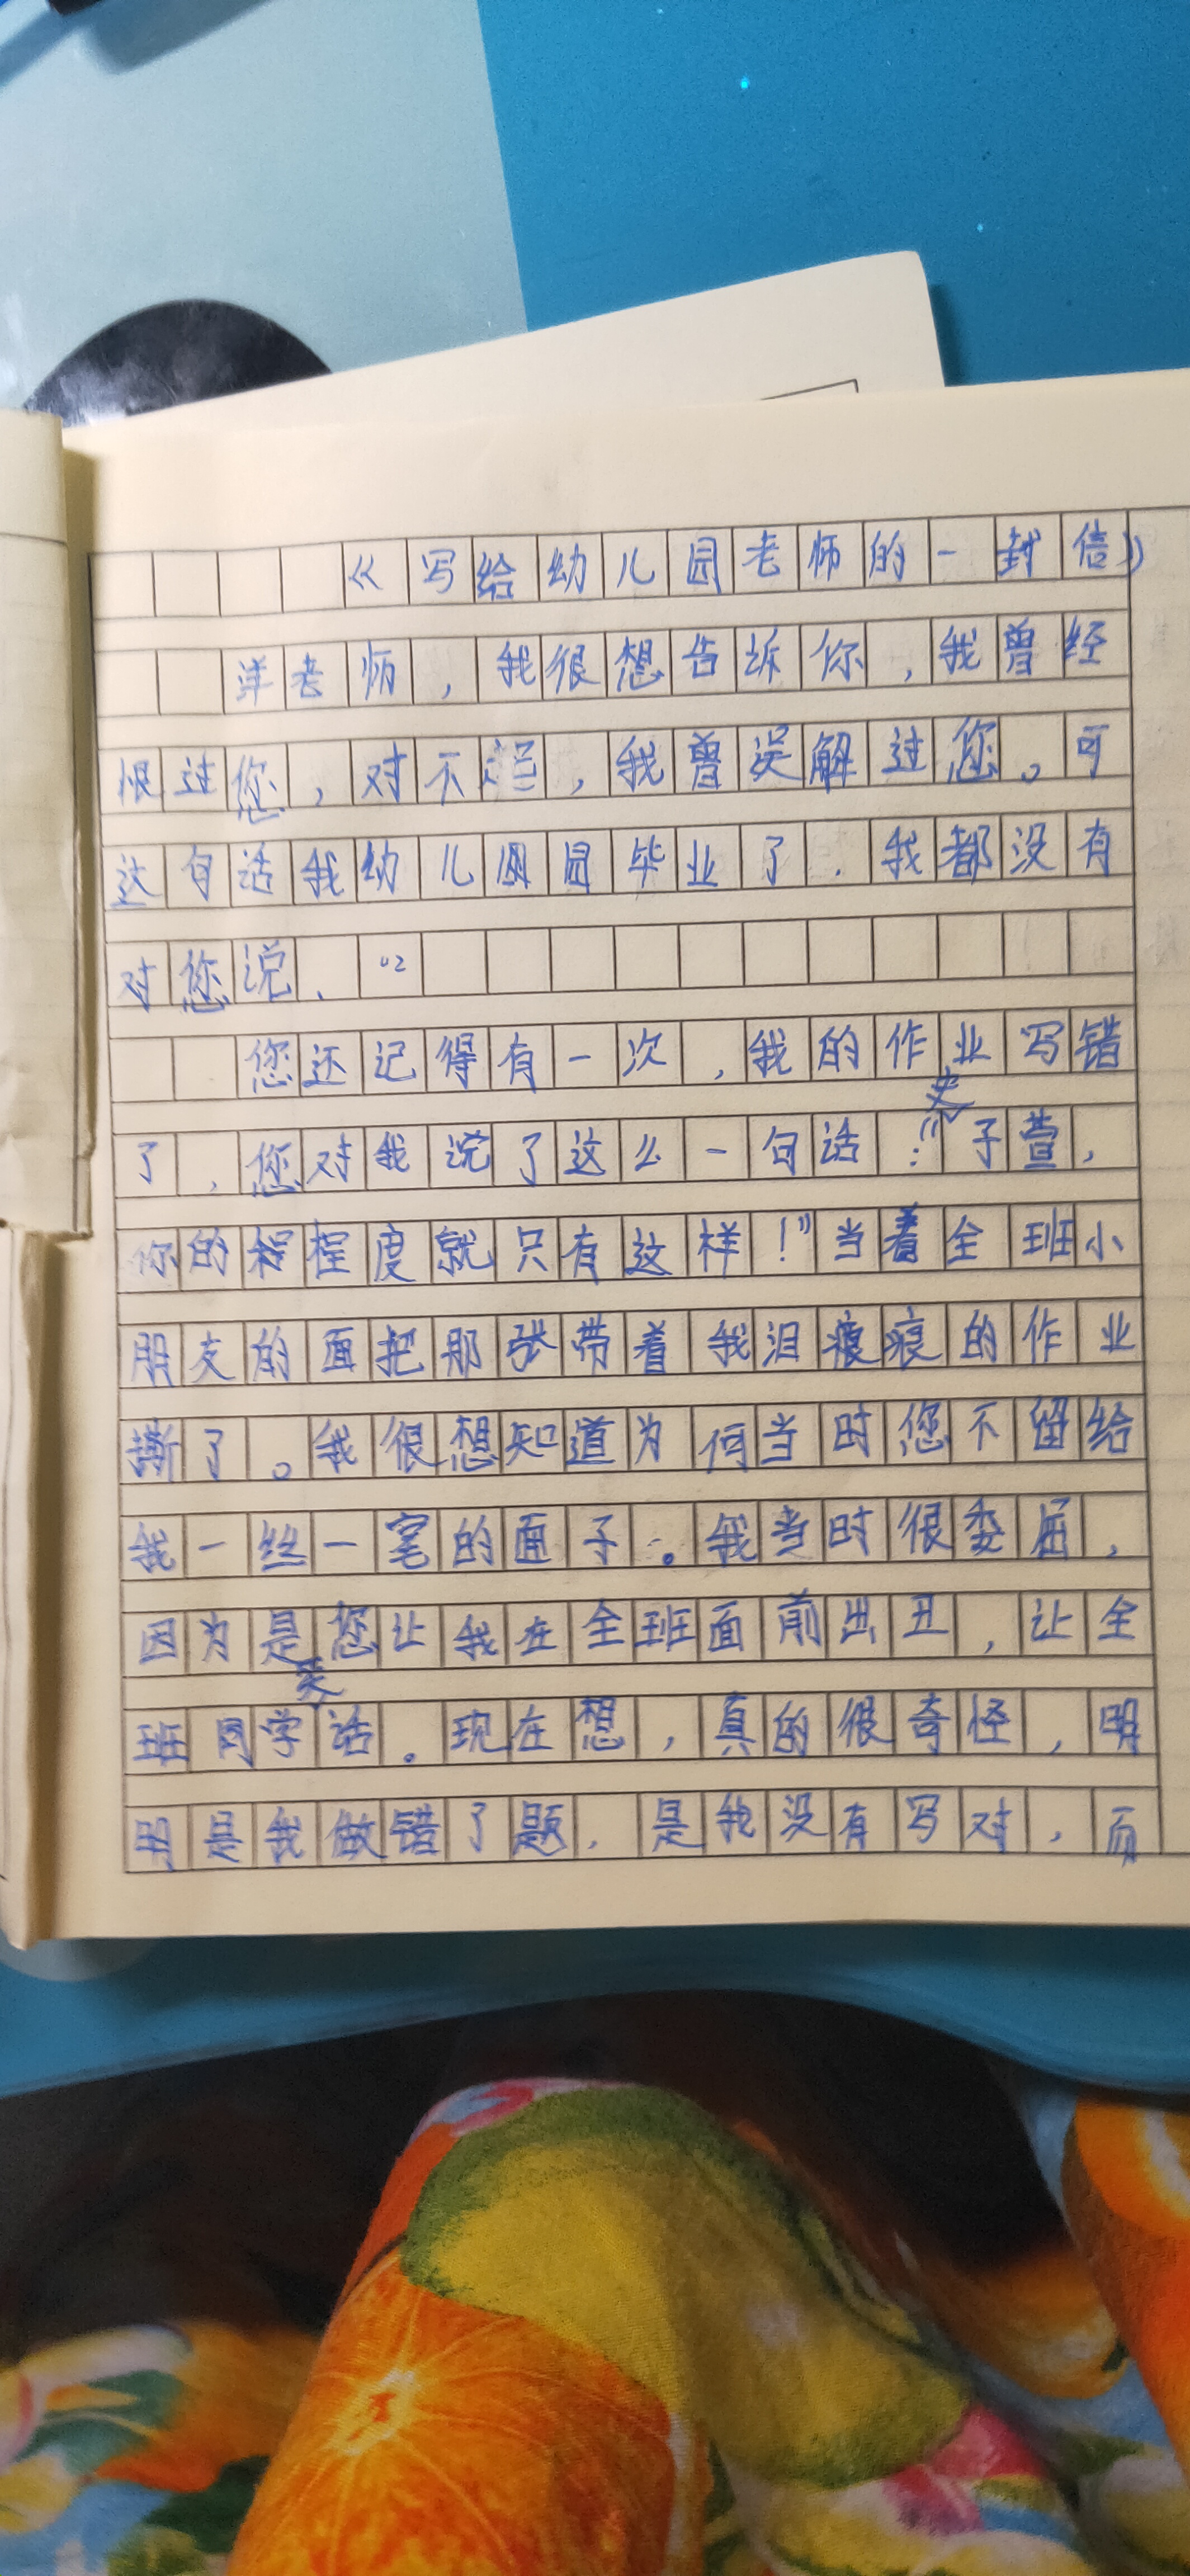 《写给幼儿园老师的一封信》
洋老师，我很想告诉你，我曾经
恨过您，对不起，我曾误解过您。可
这句话我幼儿园园毕业了．我都没有
对您说．
您还记得有一次，我的作业写错
了，您对我说了这么一句话："史子萱，
你的程程度就只有这样！"当着全班小
朋友的面把那张带着我泪痕痕的作业
撕了。我很想知道为何当时您不留给
我一丝一毫的面子。我当时很委屈，
因为是您让我在全班面前出丑，让全
班同学笑话。现在想，真的很奇怪，明
明是我做错了题．是我没有写对，而